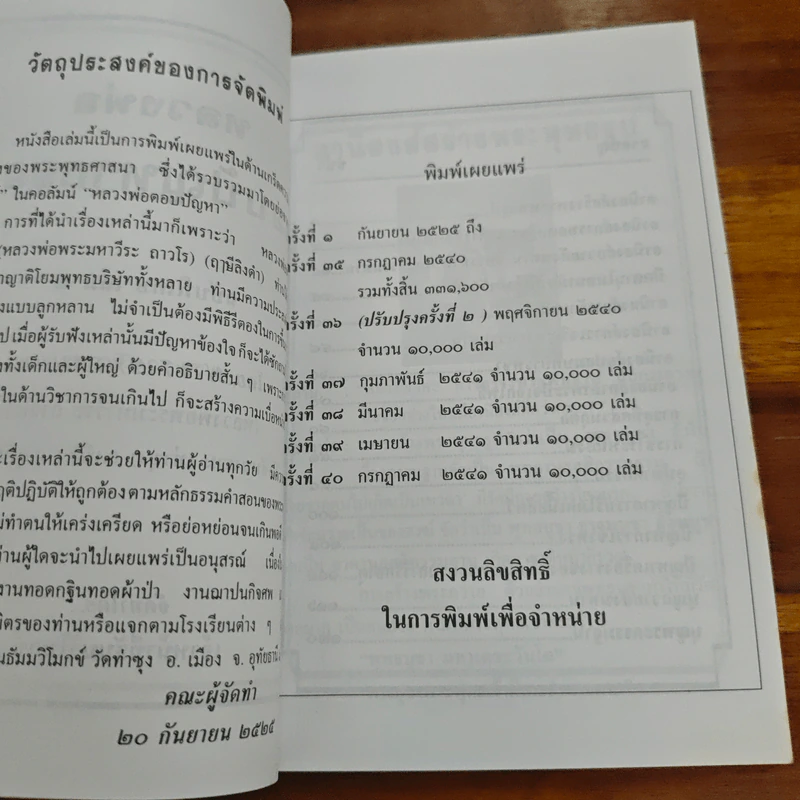 วัตถุประสงค์ของการจัดพิมพ์
หนังสือเล่มนี้เป็นการพิมพ์เผยแพร่ในด้านเกร็ด
ของพระพุทธศาสนา ซึ่งได้รวบรวมมาโดย
” ในคอลัมน์ “หลวงพ่อตอบปัญหา”
การที่ได้นำเรื่องเหล่านี้มาก็เพราะว่า หลวงพ่อ
(หลวงพ่อพระมหาวีระ ถาวโร) (ฤๅษีลิงดำ)
ญาติโยมพุทธบริษัททั้งหลาย ท่านมีความ
งแบบลูกหลาน ไม่จำเป็นต้องมีพิธีรีตองในการ
ป เมื่อผู้รับฟังเหล่านั้นมีปัญหาข้องใจ ก็จะได้
งทั้งเด็กและผู้ใหญ่ ด้วยคำอธิบายสั้น ๆ เพราะ
ในด้านวิชาการจนเกินไป ก็จะสร้างความเบื่อ
ะเรื่องเหล่านี้จะช่วยให้ท่านผู้อ่านทุกวัย
ฤติปฏิบัติให้ถูกต้องตามหลักธรรมคำสอนของพระ
ม่ทำตนให้เคร่งเครียด หรือย่อหย่อนจนเกินพอดี
านผู้ใดจะนำไปเผยแพร่เป็นอนุสรณ์
งานทอดกฐินทอดผ้าป่า งานฌาปนกิจศพ
มิตรของท่านหรือแจกตามโรงเรียนต่าง ๆ
นธัมมวิโมกข์ วัดท่าซุง อ. เมือง จ. อุทัยธานี
คณะผู้จัดทำ
๒๐ กันยายน ๒๕๒๕
พิมพ์เผยแพร่
ครั้งที่ ๑ กันยายน ๒๕๒๕ ถึง
ครั้งที่ ๓๕ กรกฎาคม ๒๕๔๐
รวมทั้งสิ้น ๓๓๑,๖๐๐
ครั้งที่ ๓๖ (ปรับปรุงครั้งที่ ๒ ) พฤศจิกายน ๒๕๔๐
จำนวน ๑๐,๐๐๐ เล่ม
ครั้งที่ ๓๗ กุมภาพันธ์ ๒๕๔๑ จำนวน ๑๐,๐๐๐ เล่ม
ครั้งที่ ๓๘ มีนาคม ๒๕๔๑ จำนวน ๑๐,๐๐๐ เล่ม
ครั้งที่ ๓๙ เมษายน ๒๕๔๑ จำนวน ๑๐,๐๐๐ เล่ม
ครั้งที่ ๔๐ กรกฎาคม ๒๕๔๑ จำนวน ๑๐,๐๐๐ เล่ม
สงวนลิขสิทธิ์
ในการพิมพ์เพื่อจำหน่าย